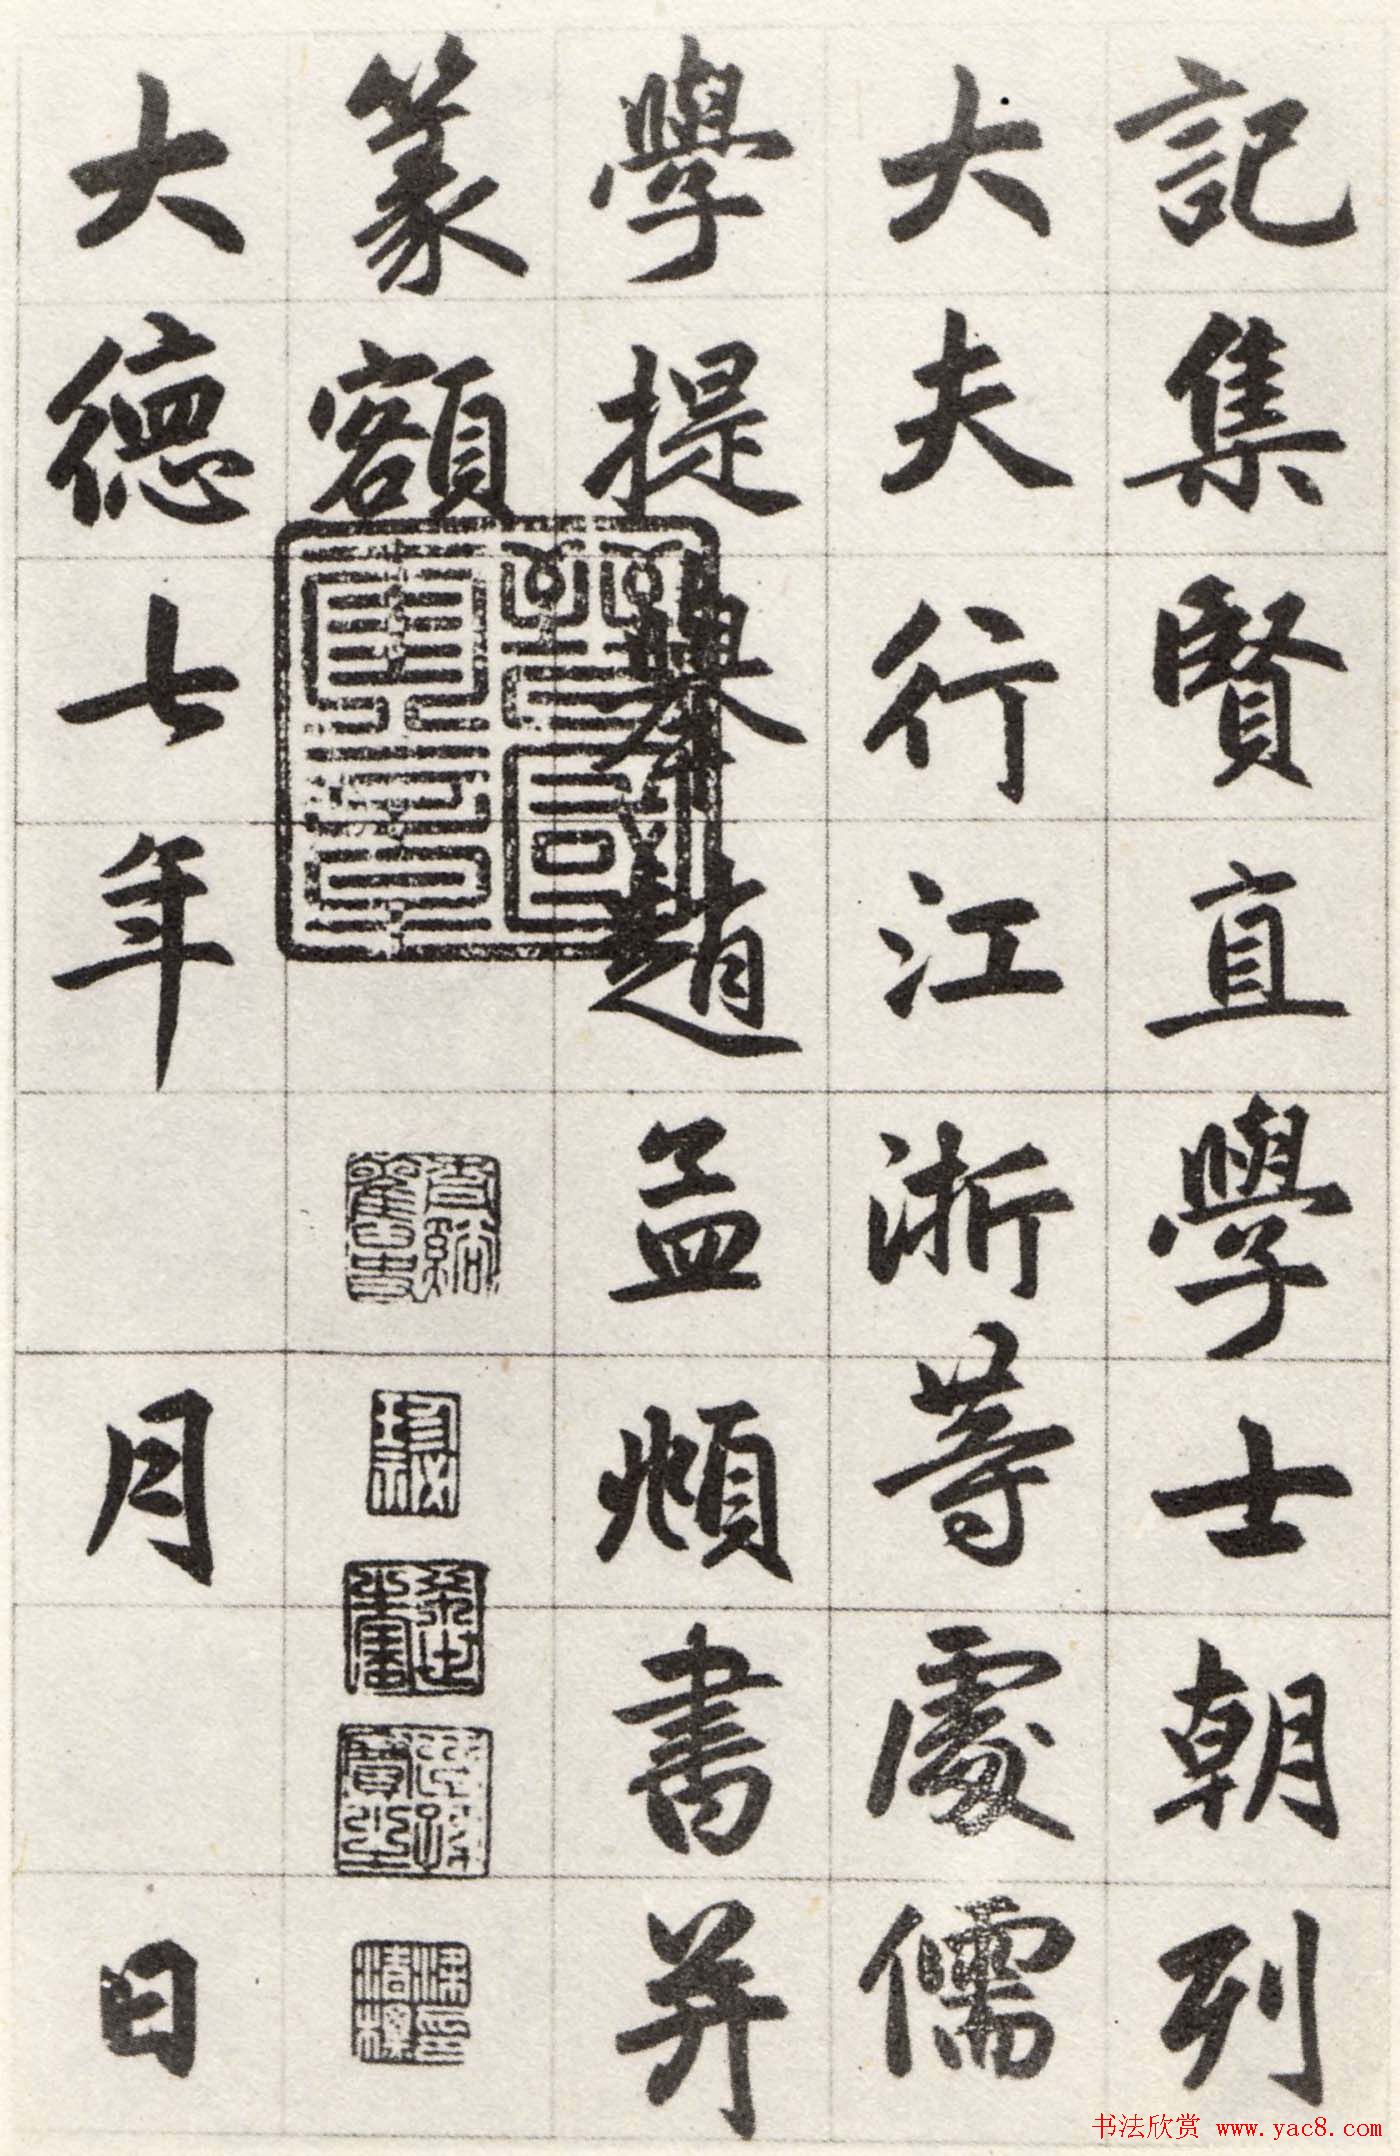 記集賢直學士朝列
大夫行江浙等處儒
學提舉趙孟頫書并
篆額
大德七年 月 日
书法欣赏 www.yac8.com